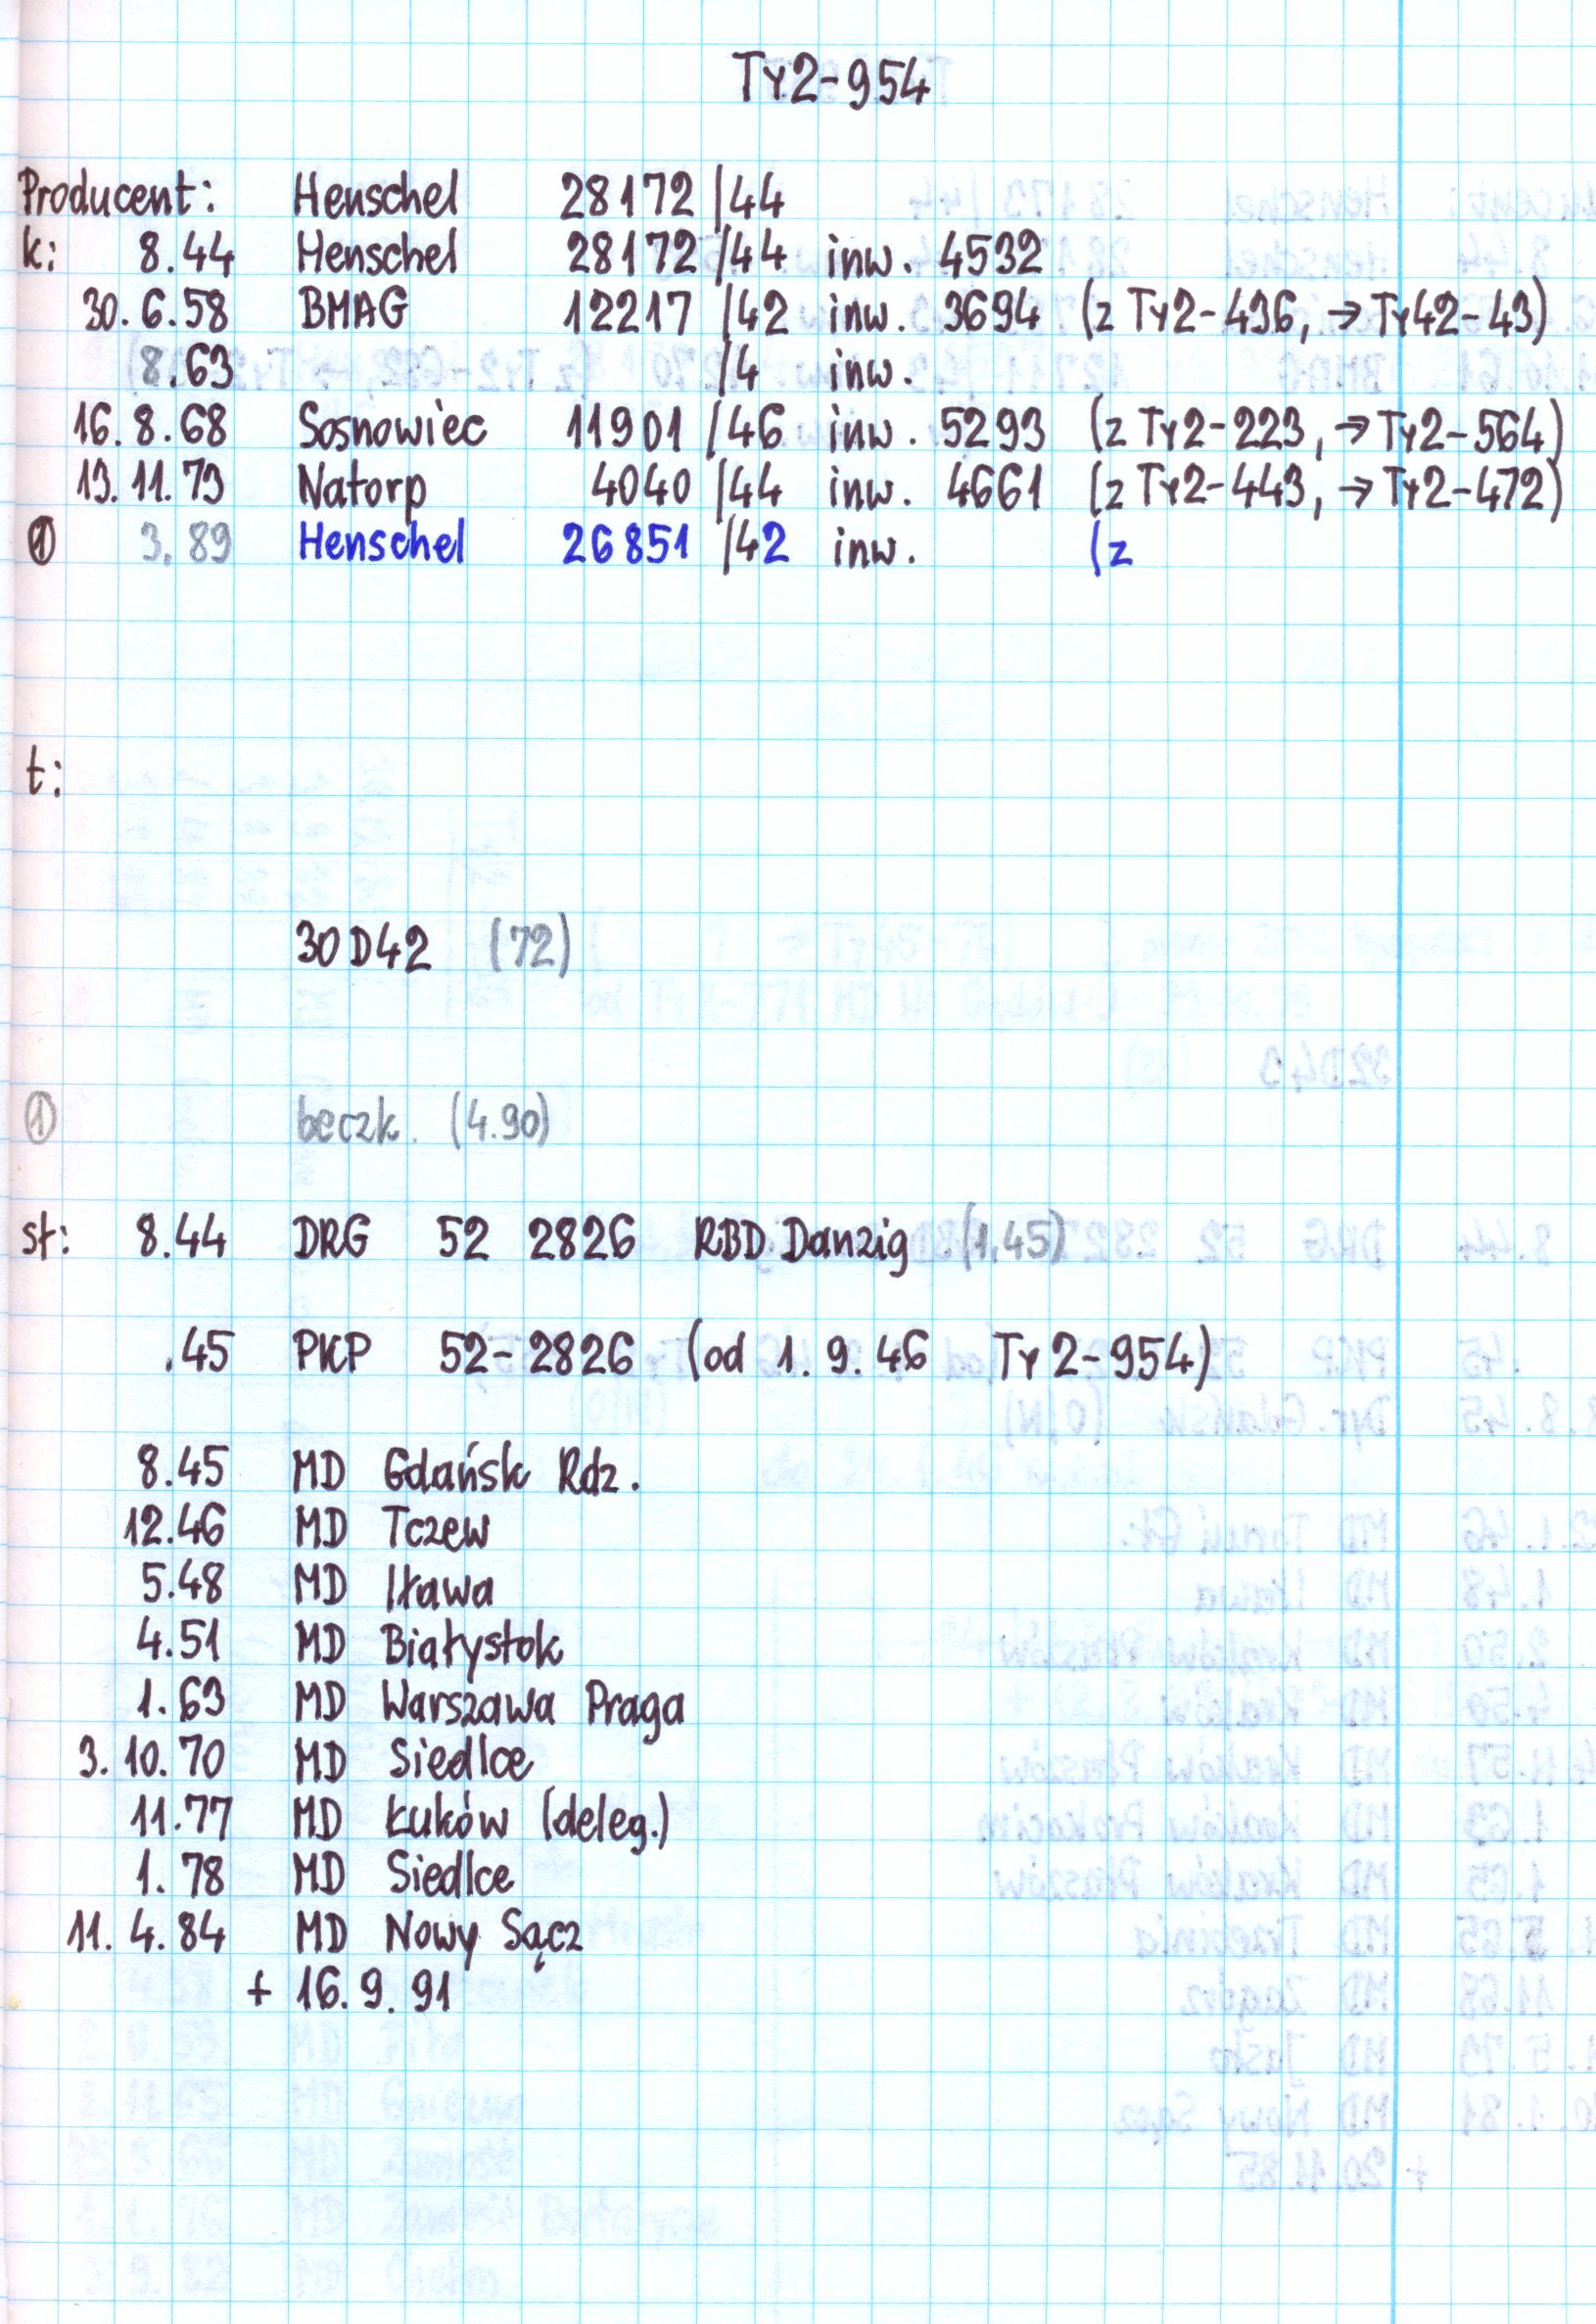 Ty2-954
Producent: Henschel 28172 /44
k: 8.44 Henschel 28172 /44 inw. 4532
30.6.58 BMAG 12217 /42 inw. 3694 (z Ty2-436, → Ty42-43)
8.63 /4 inw.
16.8.68 Sosnowiec 11901 /46 inw. 5293 (z Ty2-223, → Ty2-564)
13.11.73 Natorp 4040 /44 inw. 4661 (z Ty2-443, → Ty2-472)
① 3.89 Henschel 26851 /42 inw. (z
t:
30D42 (72)
① beczk. (4.90)
st: 8.44 DRG 52 2826 RBD Danzig (1.45)
.45 PKP 52-2826 (od 1.9.46 Ty2-954)
8.45 MD Gdańsk Rdz.
12.46 MD Tczew
5.48 MD Iława
4.51 MD Białystok
1.63 MD Warszawa Praga
3.10.70 MD Siedlce
11.77 MD Łuków (deleg.)
1.78 MD Siedlce
11.4.84 MD Nowy Sącz
+ 16.9.91